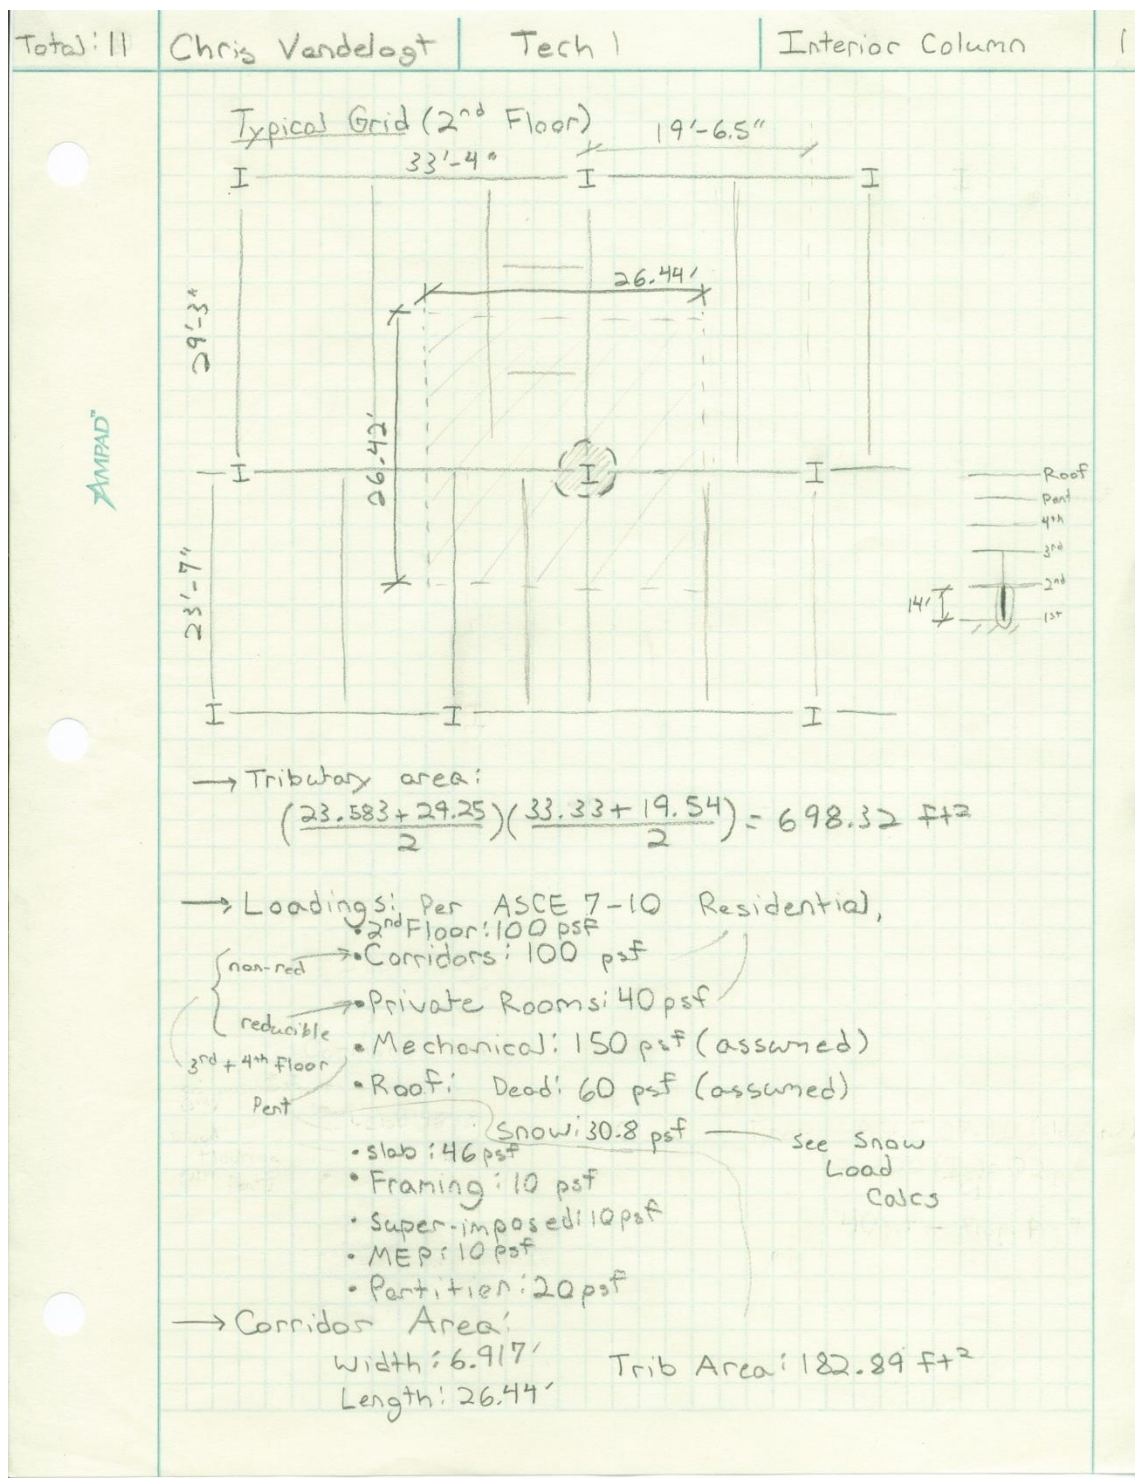 Total: 11
Chris Vandelogt
Tech 1
Interior Column
1
Typical Grid (2nd Floor)
19'-6.5"
33'-4"
I I I
26.44'
29'-3"
26.42'
I I I
23'-7"
I I I
Roof
Pent
4th
3rd
2nd
14'
1st
AMPAD™
→ Tributary area:
(23.583 + 29.25 / 2)(33.33 + 19.54 / 2) = 698.32 ft²
→ Loadings: Per ASCE 7-10 Residential,
• 2nd Floor: 100 psf
non-red → • Corridors: 100 psf
reducible → • Private Rooms: 40 psf
3rd + 4th floor
• Mechanical: 150 psf (assumed)
Pent
• Roof: Dead: 60 psf (assumed)
Snow: 30.8 psf — See Snow
Load
Calcs
• slab: 46 psf
• Framing: 10 psf
• Super-imposed: 10 psf
• MEP: 10 psf
• Partition: 20 psf
→ Corridor Area:
Width: 6.917' Trib Area: 182.89 ft²
Length: 26.44'